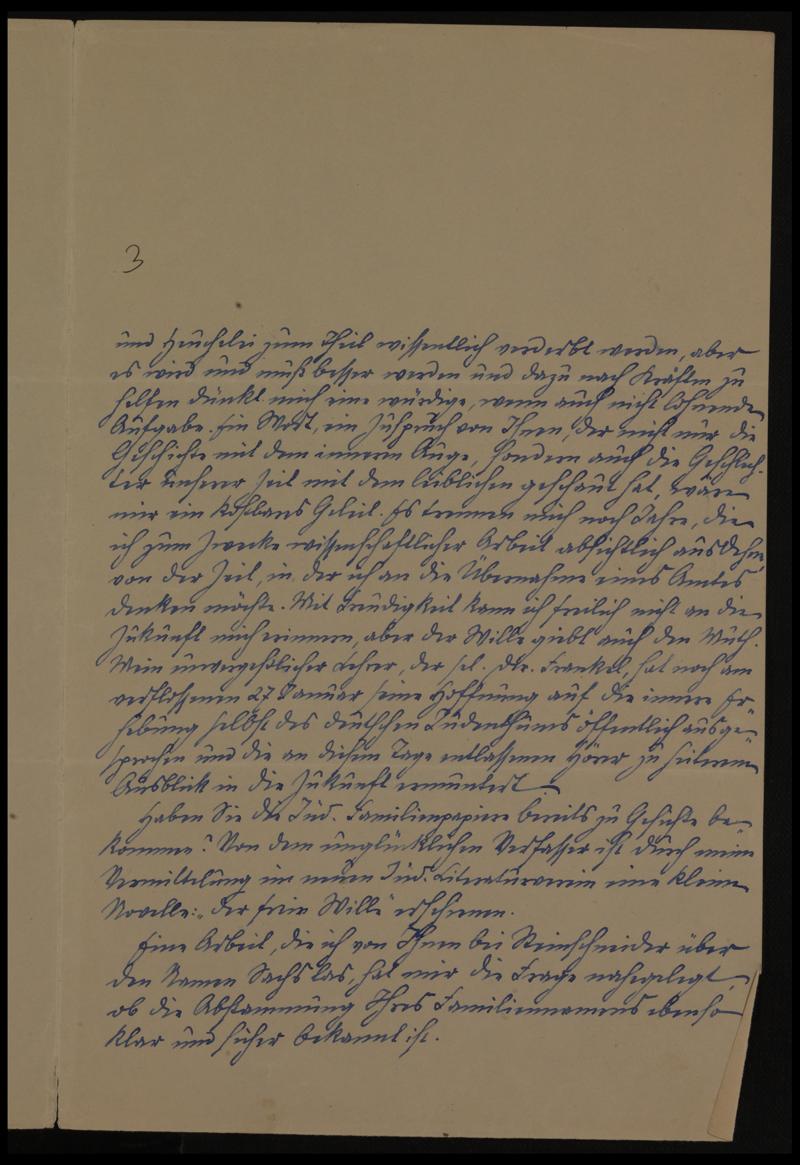 3
und Heuchelei zum Theil wissentlich verderbt werden, aber
es wird und muß besser werden und dazu nach Kräften zu
helfen dünkt mich eine würdige, wenn auch nicht lohnende
Aufgabe. Ein Wort, ein Zuspruch von Ihnen, der nicht nur die
Geschichte mit dem innern Auge, sondern auch die Geschlech-
ter unserer Zeit mit dem leiblichen geschaut hat, wäre
mir ein kostbares Geleit. Es trennen mich noch Jahre, die
ich zum Zwecke wissenschaftlicher Arbeit absichtlich ausdehne,
von der Zeit, in der ich an die Übernahme eines Amtes
denken möchte. Mit Freudigkeit kann ich freilich nicht an die
Zukunft mich erinnern, aber der Wille giebt auch den Muth.
Mein unvergeßlicher Lehrer, der sel. Dr. Frankel, hat noch am
verflossenen 27 Januar seine Hoffnung auf die innere Er-
hebung selbst des deutschen Judenthums öffentlich ausge-
sprochen und die an diesem Tage entlassenen Hörer zu heiterem
Ausblick in die Zukunft ermuntert.
Haben Sie die Jüd. Familienpapiere bereits zu Gesichte be-
kommen? Von dem unglücklichen Verfasser ist durch meine
Vermittelung im neuen Jüd. Literaturverein eine kleine
Novelle: „Der freie Wille" erschienen.
Eine Arbeit, die ich von Ihnen bei Steinschneider über
den Namen Sachs las, hat mir die Frage nahegelegt,
ob die Abstammung Ihres Familiennamens ebenso
klar und sicher bekannt ist.